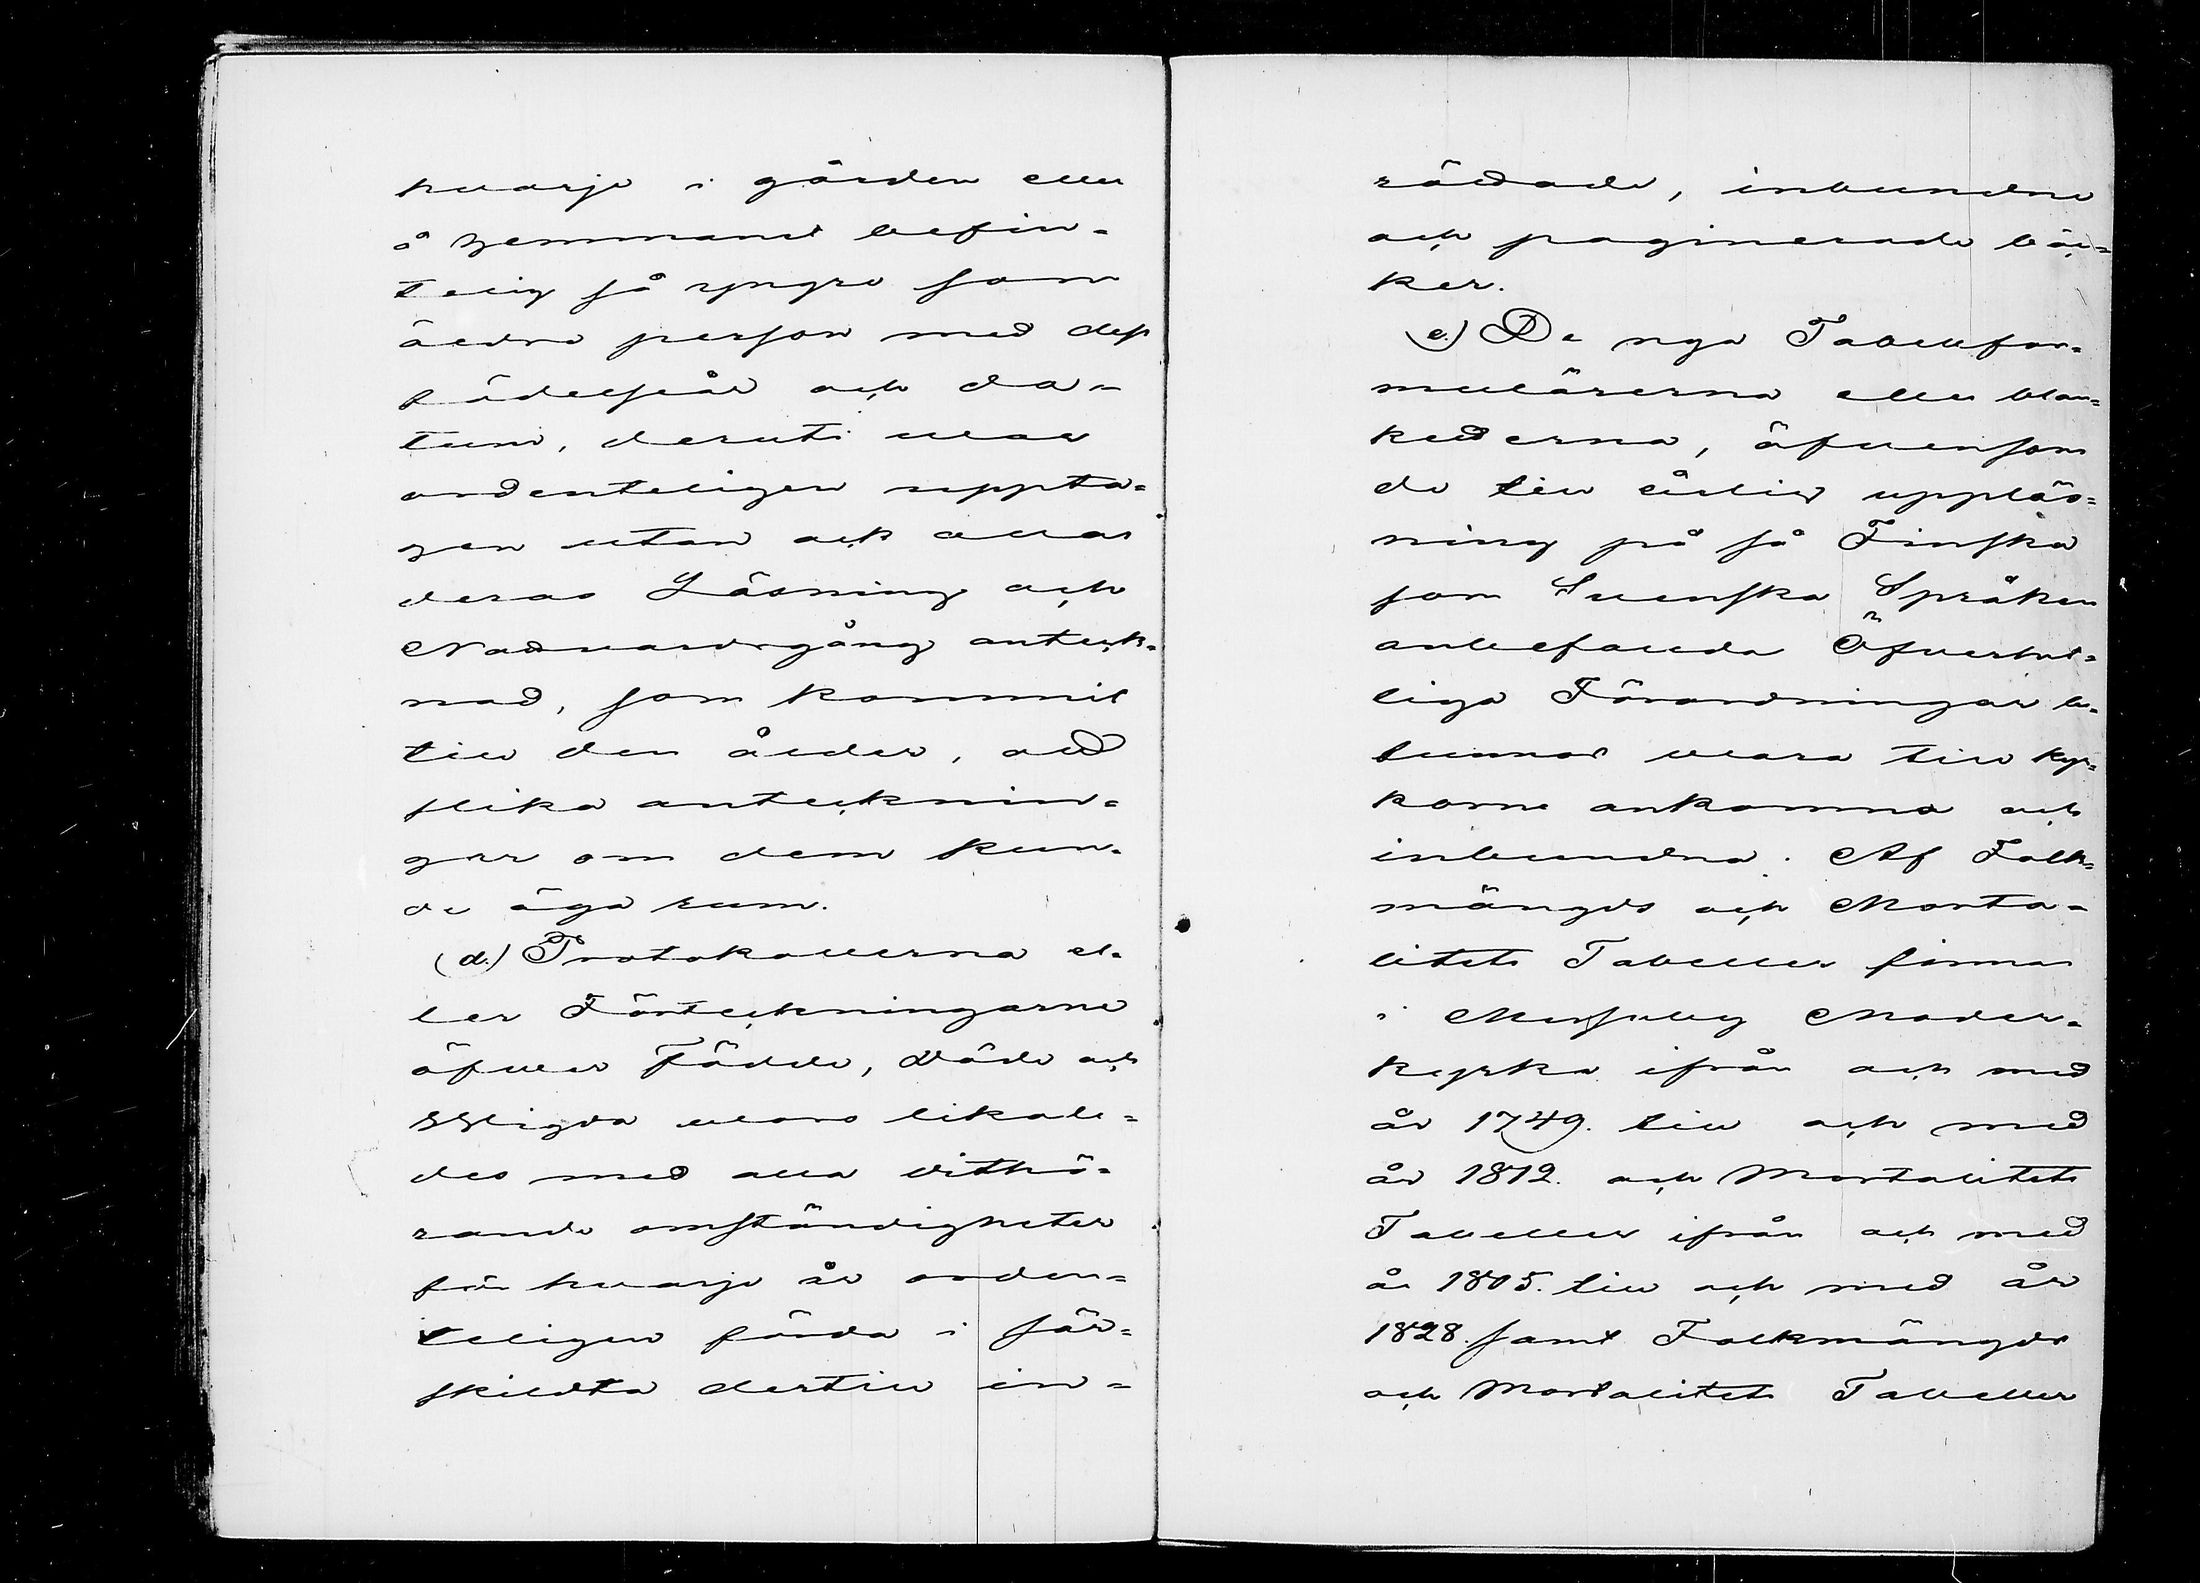 hvarje i gården eller
å hemmanet befin-
telig så yngre som
äldre person med dess
födelseår och da-
tum, deruti voro
ordenteligen uppta-
gen utan ock allas
deras Läsning och
Nattvardsgång anteck-
nad, som kommit
till den ålder, att
slika antecknin-
gar om dem kun-
de äga rum.
(d.) Protokollerna el-
ler Förteckningarne
öfver Födde, Döde och
Wigda voro likale-
des med alla dithö-
rande omständigheter
för hvarje år orden-
teligen förda i sär-
skildta dertill in-
rättade, inbundne
och paginerade böc-
ker.
e.) De nya Tabellfor-
mulärerna eller blan-
ketterna, äfvensom
de till årlig uppläs-
ning på så Finska
som Svenska Språken
anbefallda Öfverhet-
liga Förordningar be-
funnos vara till kyr-
korne ankomna och
inbundna. Af Folk-
mängds och Morta-
litets Tabeller finnas
i Moder-
kyrka ifrån och med
år 1749. till och med
år 1812. och Mortalitets
Tabeller ifrån och med
år 1805. till och med år
1828. samt Folkmängds
och Mortalitets Tabeller